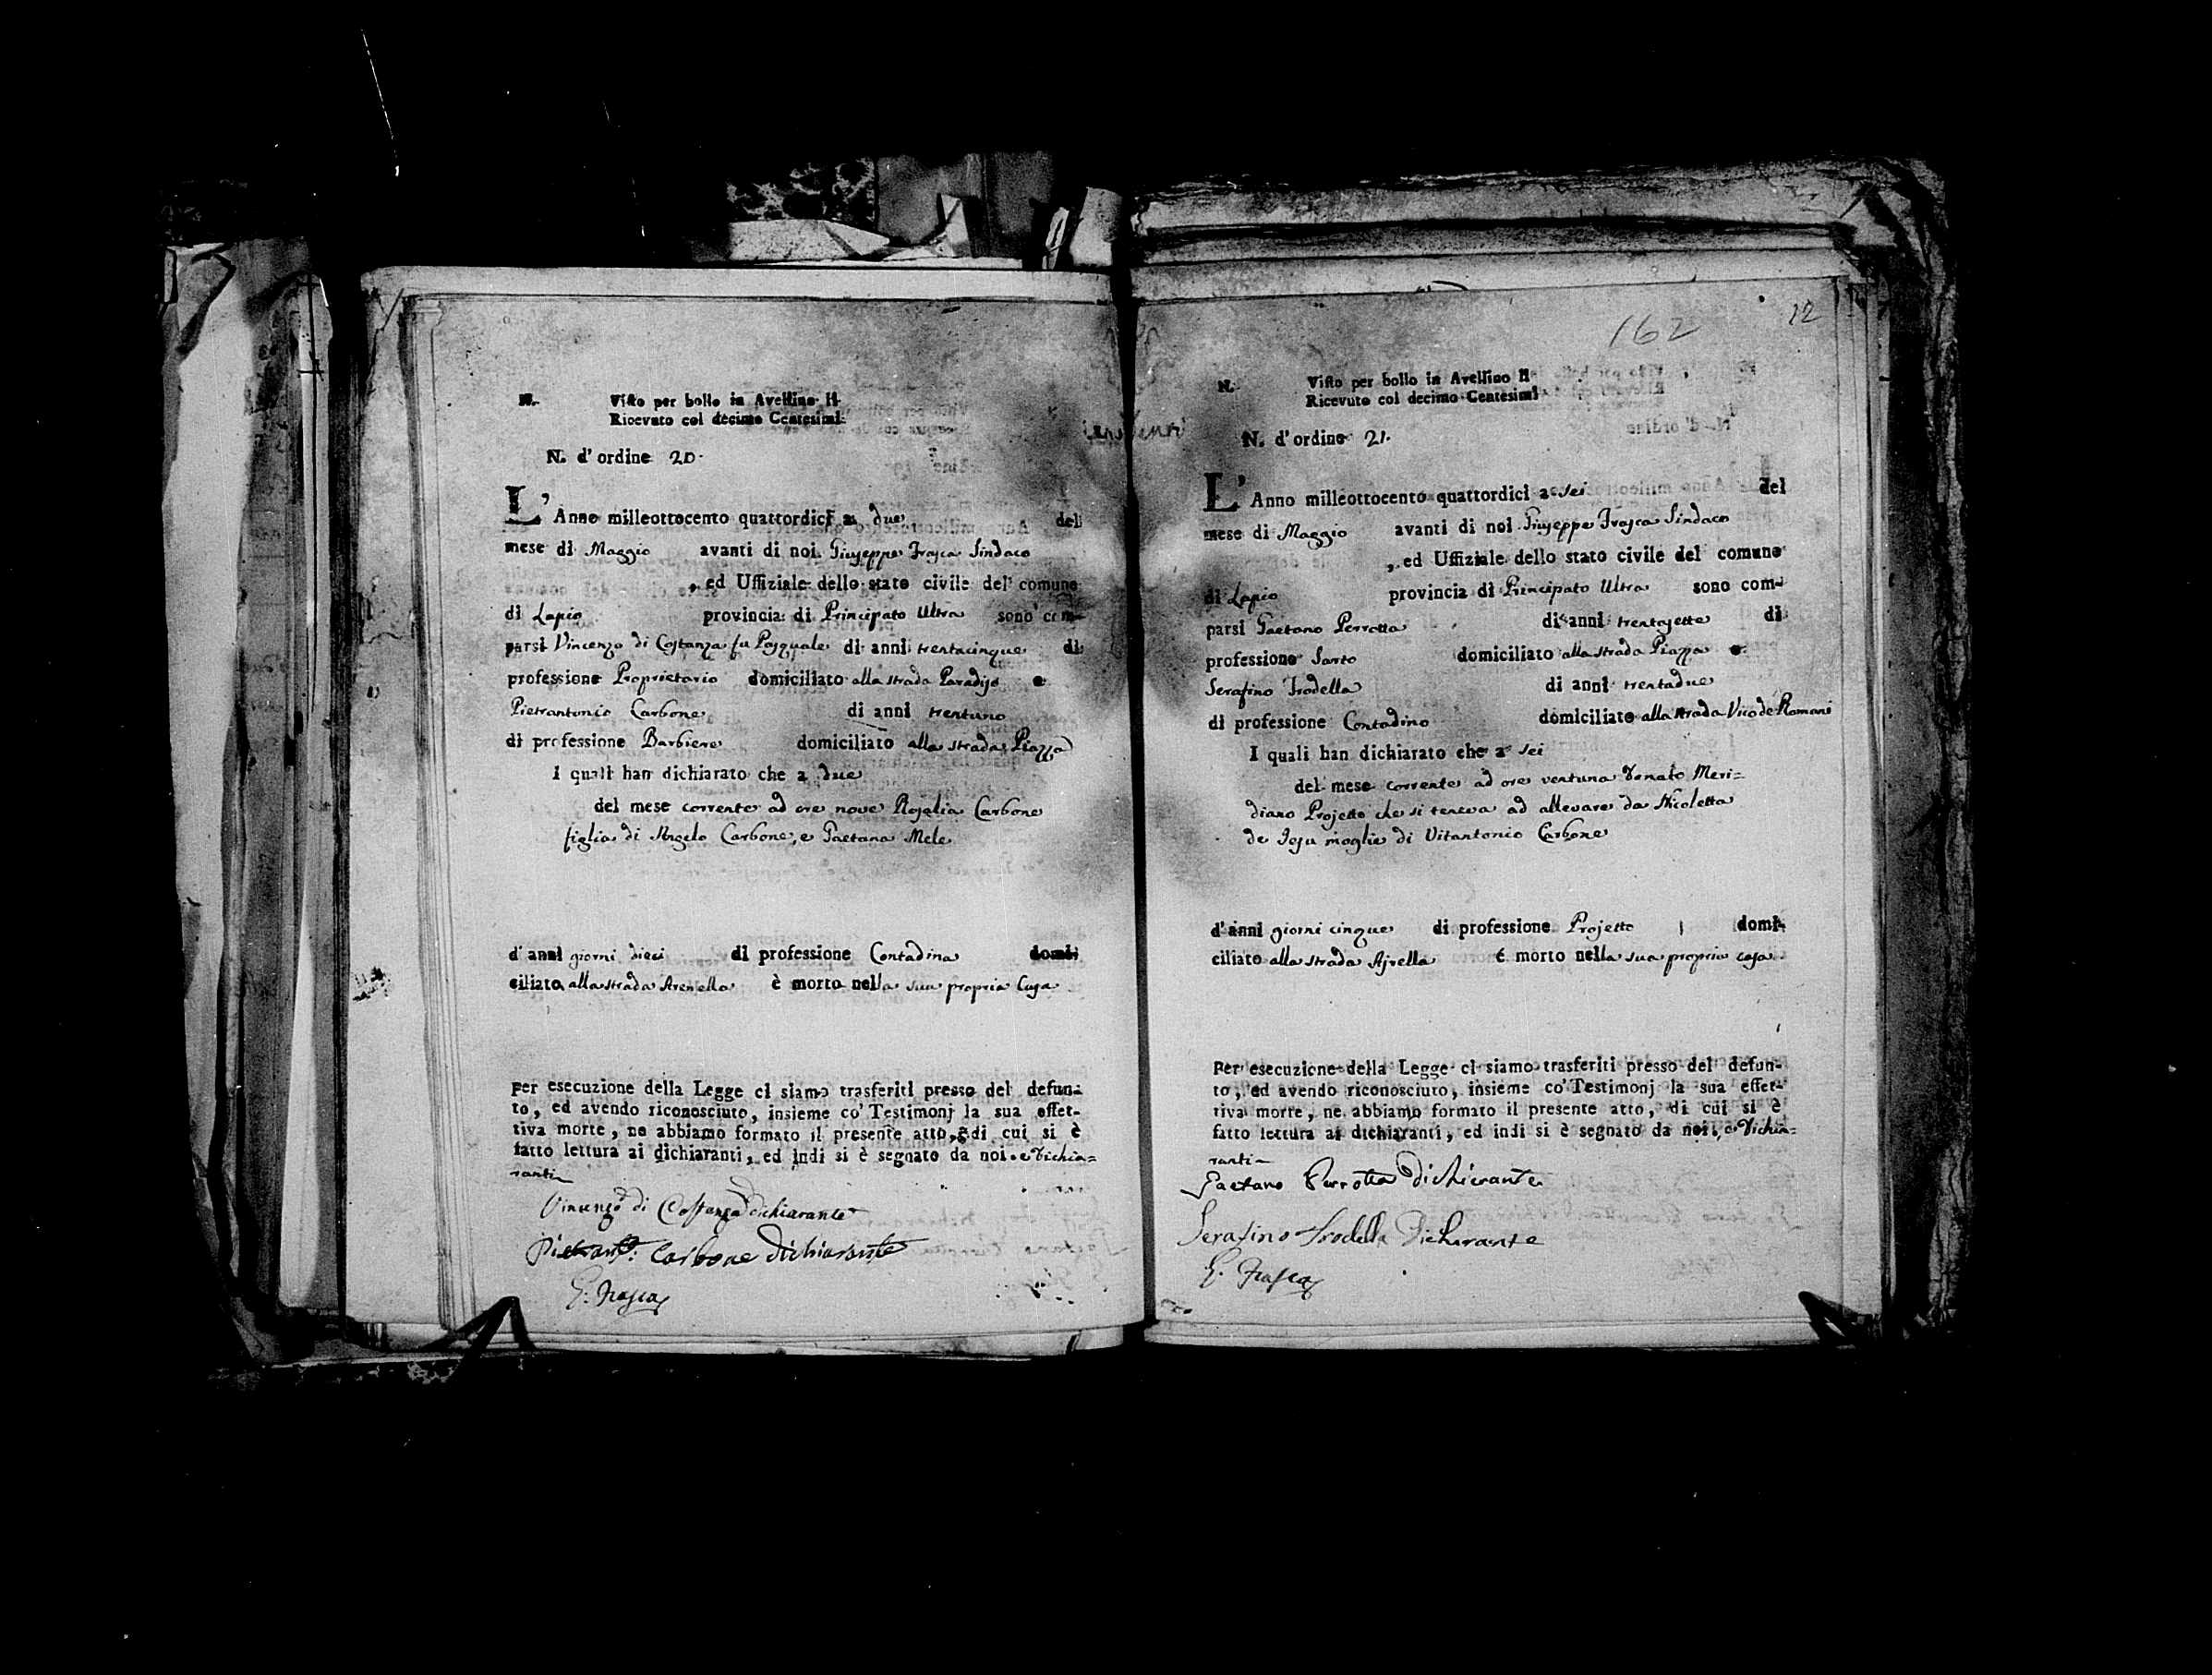 N. Visto per bollo in Avellino li
Ricevuto col decimo Centesimi
N. d'ordine 20.
L'Anno milleottocento quattordici a due del
mese di Maggio avanti di noi Giuseppe Frasca Sindaco
, ed Uffiziale dello stato civile del comune
di Lapio provincia di Principato Ultra sono com-
parsi Vincenzo di Costanza fu Pasquale di anni trentacinque di
professione Proprietario domiciliato alla strada Paradiso e
Pietrantonio Carbone di anni trentuno
di professione Barbiere domiciliato alla strada Piazza
I quali han dichiarato che a due
del mese corrente ad ore nove Rosalia Carbone
figlia di Angelo Carbone, e Gaetana Mele
d'anni giorni dieci di professione Contadina domi-
ciliato alla strada Arenella è morto nella sua propria Casa
Per esecuzione della Legge ci siamo trasferiti presso del defun-
to, ed avendo riconosciuto, insieme co' Testimonj la sua effet-
tiva morte, ne abbiamo formato il presente atto, di cui si è
fatto lettura ai dichiaranti, ed indi si è segnato da noi e dichia=
ranti
Vincenzo di Costanza dichiarante
Pietrant.o Carbone dichiarante
G. Frasca
162 12
N. Visto per bollo in Avellino li
Ricevuto col decimo Centesimi
N. d'ordine 21.
L'Anno milleottocento quattordici a sei del
mese di Maggio avanti di noi Giuseppe Frasca Sindaco
, ed Uffiziale dello stato civile del comune
di Lapio provincia di Principato Ultra sono com-
parsi Gaetano Perrotta di anni trentasette di
professione Sarto domiciliato alla strada Piazza e
Serafino Trodella di anni trentadue
di professione Contadino domiciliato alla strada Vico de Romani
I quali han dichiarato che a sei
del mese corrente ad ore ventuna Donato Meri=
diano Projetto che si teneva ad allevare da Nicoletta
de Jesu moglie di Vitantonio Carbone
d'anni giorni cinque di professione Projetto domi-
ciliato alla strada Ajrella è morto nella sua propria casa
Per esecuzione della Legge ci siamo trasferiti presso del defun-
to, ed avendo riconosciuto, insieme co' Testimonj la sua effet-
tiva morte, ne abbiamo formato il presente atto, di cui si è
fatto lettura ai dichiaranti, ed indi si è segnato da noi, e dichia=
ranti
Gaetano Perrotta Dichiarante
Serafino Trodella Dicharante
G. Frasca